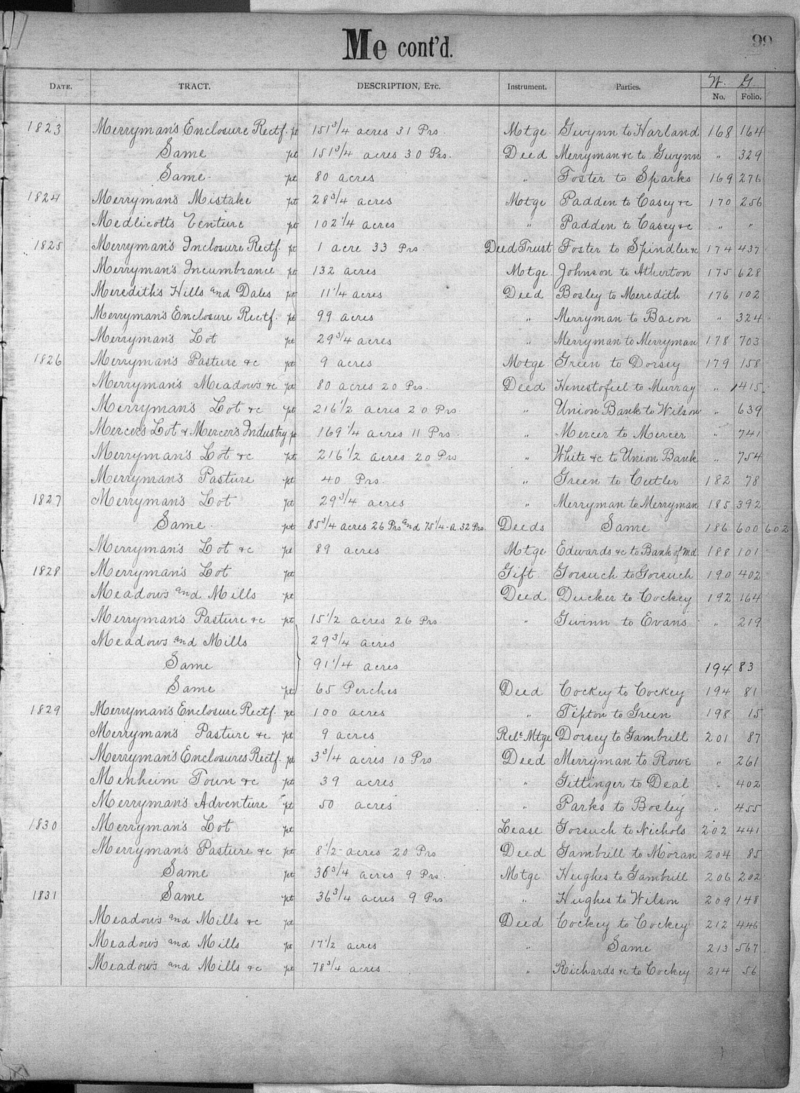 Me cont'd.
99
DATE. TRACT. DESCRIPTION, ETC. Instrument. Parties. W. G.
No. Folio.
1823 Merryman's Enclosure Rectf. pt 151 3/4 acres 31 Prs Mtge Gwynn to Harland 168 164
Same pt 151 3/4 acres 30 Prs. Deed Merryman &c to Gwynn " 329
Same pt 80 acres " Foster to Sparks 169 276
1824 Merryman's Mistake pt 28 3/4 acres Motge Padden to Casey &c 170 256
Medlicotts Venture pt 102 1/4 acres " Padden to Casey &c " "
1825 Merryman's Inclosure Rectf pt 1 acre 33 Prs Deed Trust Foster to Spindler &c 174 437
Merryman's Incumbrance pt 132 acres Mtge. Johnson to Atherton 175 628
Meredith's Hills and Dales pt 11 1/4 acres Deed Bosley to Meredith 176 102
Merryman's Enclosure Rectf. pt 99 acres " Merryman to Bacon " 324
Merryman's Lot pt 29 3/4 acres " Merryman to Merryman 178 703
1826 Merryman's Pasture &c pt 9 acres Motge Green to Dorsey 179 158
Merryman's Meadows &c pt 80 acres 20 Prs. Deed Hinestofiel to Murray " 415
Merryman's Lot &c pt 216 1/2 acres 20 Prs " Union Bank to Wilson " 639
Mercer's Lot & Mercer's Industry pt 169 1/4 acres 11 Prs " Mercer to Mercer " 741
Merryman's Lot &c pt 216 1/2 acres 20 Prs " White &c to Union Bank " 754
Merryman's Pasture pt 40 Prs. " Green to Cutler 182 78
1827 Merryman's Lot pt 29 3/4 acres " Merryman to Merryman 185 392
Same pt 85 3/4 acres 26 Prs and 75 1/4 a. 32 Prs Deeds Same 186 600 602
Merryman's Lot &c pt 89 acres Mtge Edwards &c to Bank of Md 188 101
1828 Merryman's Lot pt Gift Gorsuch to Gorsuch 190 402
Meadows and Mills pt Deed Ducker to Cockey 192 164
Merryman's Pasture &c pt 15 1/2 acres 26 Prs " Gwinn to Evans " 219
Meadows and Mills 29 3/4 acres
Same 91 1/4 acres 194 83
Same pt 65 Perches Deed Cockey to Cockey 194 81
1829 Merryman's Enclosure Rectf. pt 100 acres " Tipton to Green 198 15
Merryman's Pasture &c pt 9 acres Rels Mtge Dorsey to Gambrill 201 87
Merryman's Enclosures Rectf. pt 3 3/4 acres 10 Prs Deed Merryman to Rowe " 261
Menheim Town &c pt 39 acres " Gittinger to Deal " 402
Merryman's Adventure pt 50 acres " Parks to Bosley " 455
1830 Merryman's Lot pt Lease Gorsuch to Nichols 202 441
Merryman's Pasture &c pt 8 1/2 acres 20 Prs Deed Gambrill to Moran 204 85
Same pt 36 3/4 acres 9 Prs. Motge Hughes to Gambrill 206 202
1831 Same pt 36 3/4 acres 9 Prs " Hughes to Wilson 209 148
Meadows and Mills &c pt Deed Cockey to Cockey 212 446
Meadows and Mills pt 17 1/2 acres " Same 213 567
Meadows and Mills &c pt 78 3/4 acres " Richards &c to Cockey 214 56